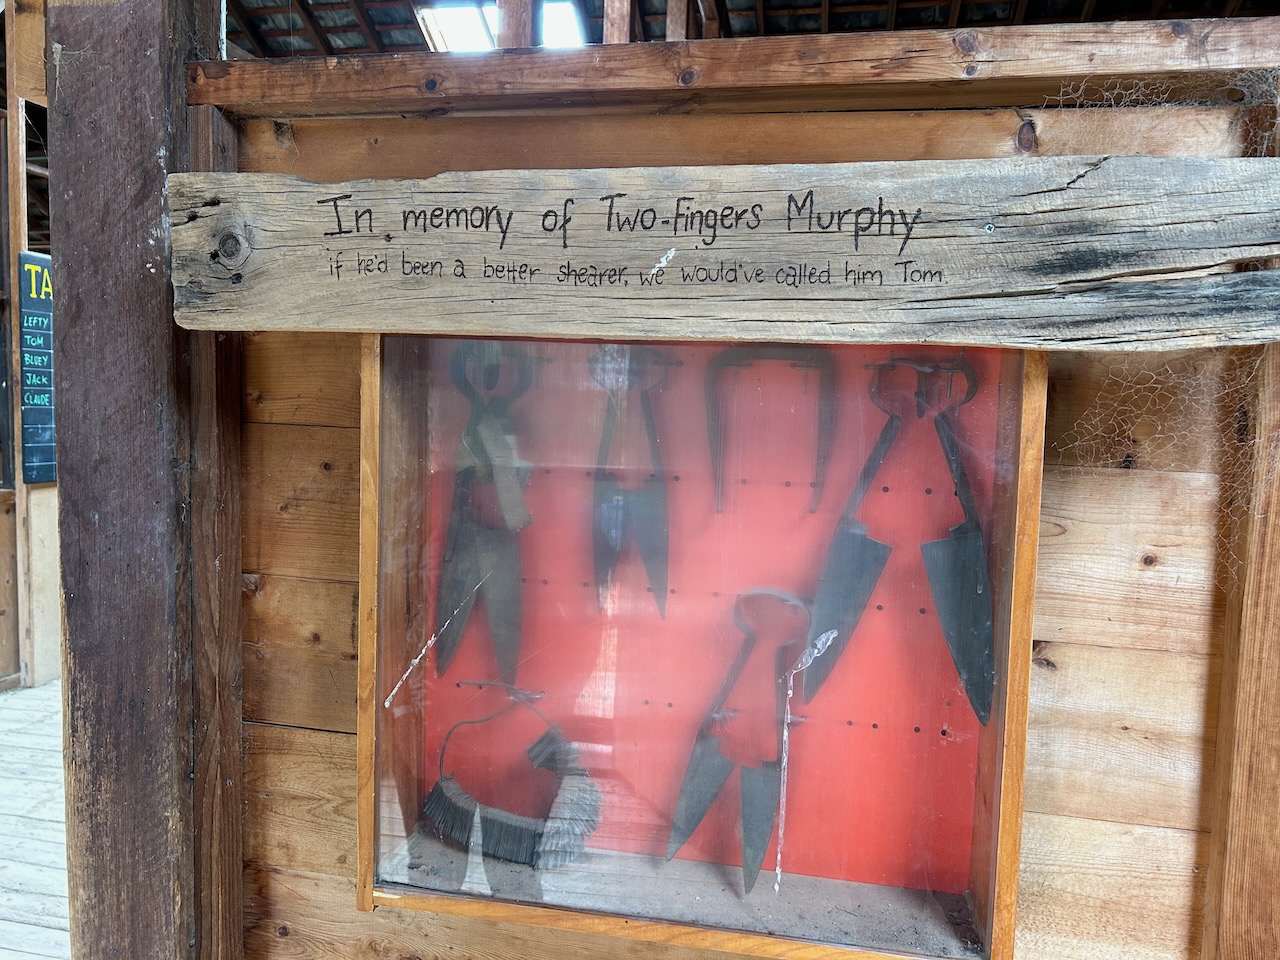 In memory of Two-Fingers Murphy
if he'd been a better shearer, we would've called him Tom.
TA
LEFTY
TOM
BLUEY
JACK
CLAUDE